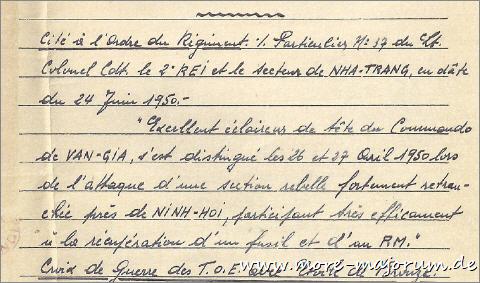 Cité à l'Ordre du Régiment. /. Particulier N° 37 du Lt.
Colonel Cdt. le 2° REI et le secteur de NHA-TRANG, en date
du 24 Juin 1950.-
"Excellent éclaireur de tête du Commando
de VAN-GIA, s'est distingué les 26 et 27 Avril 1950 lors
de l'attaque d'une section rebelle fortement retran-
chée près de NINH-HOI, participant très efficament
à la récupération d'un fusil et d'un P.M."
Croix de Guerre des T.O.E. avec Etoile de Bronze.
www.more-majorum.de